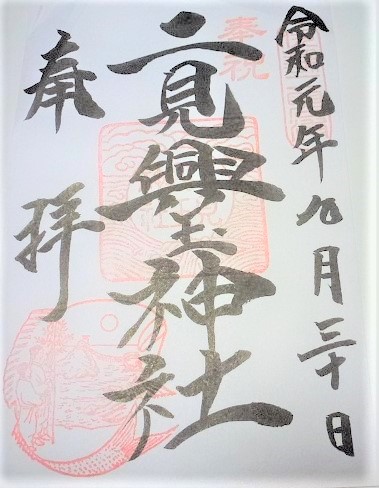 令和元年九月三十日
奉祝
二見興玉神社
奉拝